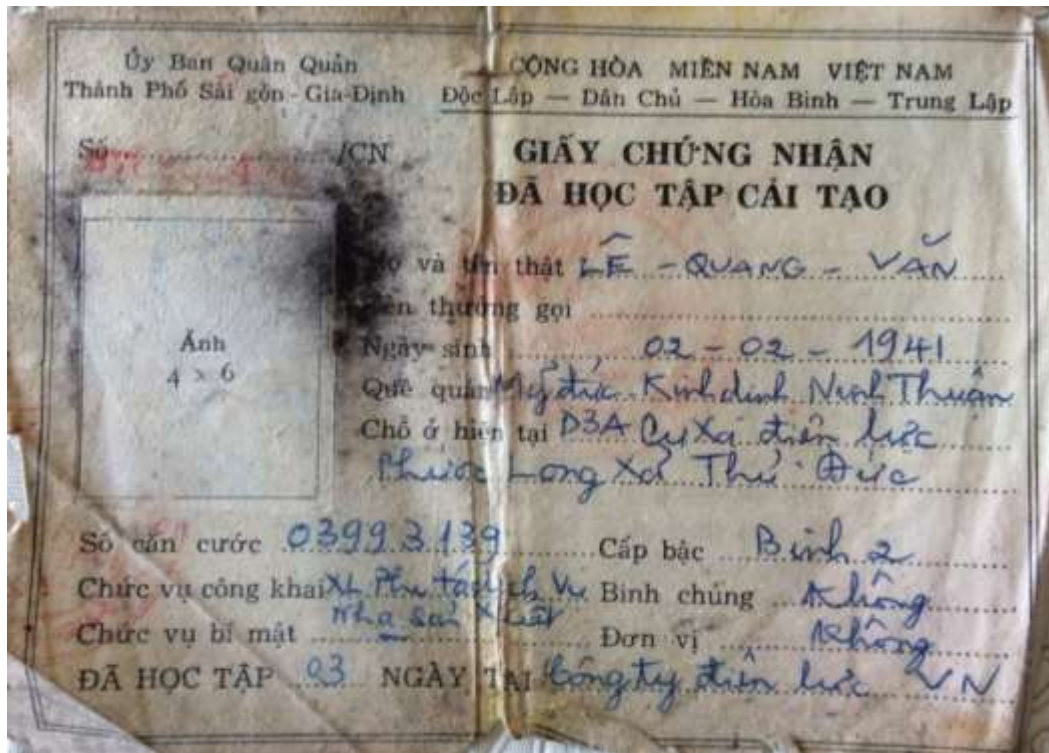 Ủy Ban Quân Quản
Thành Phố Sài gòn - Gia-Định
CỘNG HÒA MIỀN NAM VIỆT NAM
Độc Lập — Dân Chủ — Hòa Bình — Trung Lập
Số /CN
GIẤY CHỨNG NHẬN
ĐÃ HỌC TẬP CẢI TẠO
Ảnh
4 x 6
Họ và tên thật LÊ - QUANG - VĂN
Tên thường gọi
Ngày sinh 02 - 02 - 1941
Quê quán Mỹ đức Kinh dinh Ninh Thuận
Chỗ ở hiện tại D3A Cư Xá điện lực
Phước Long Xã Thủ Đức
Số căn cước 03993139 Cấp bậc Binh 2
Chức vụ công khai XL Phụ tá Vụ Binh chủng Không
Nha Sản Xuất
Chức vụ bí mật Đơn vị Không
ĐÃ HỌC TẬP 03 NGÀY TẠI Công ty điện lực VN